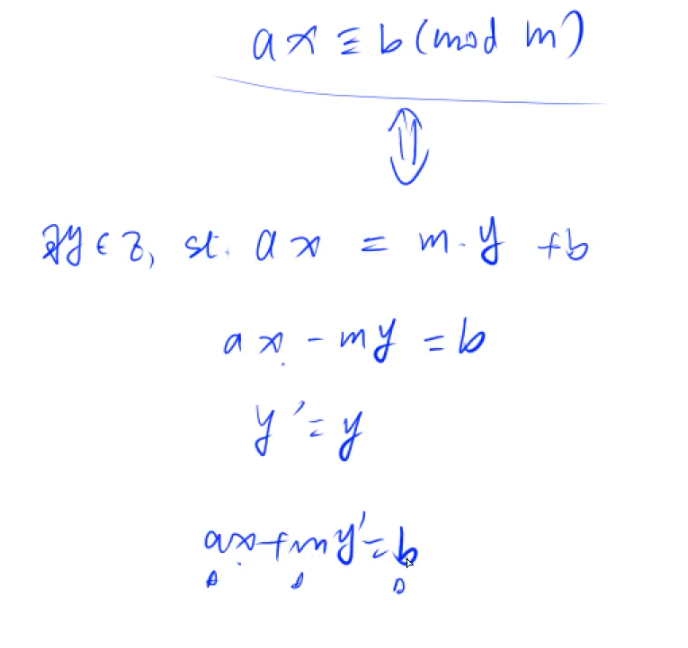 ax ≡ b (mod m)
⇕
∃y ∈ Z, st. ax = m·y + b
ax - my = b
y' = y
ax + my' = b